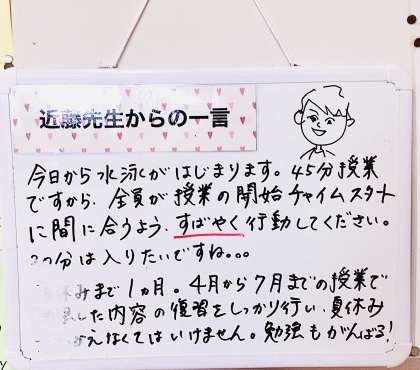 近藤先生からの一言
今日から水泳がはじまります。45分授業
ですから、全員が授業の開始チャイムスタート
に間に合うよう、すばやく行動してください。
分は入りたいですね。。。
休みまで1ヵ月。4月から7月までの授業で
した内容の復習をしっかり行い、夏休み
えなくてはいけません。勉強もがんばる!